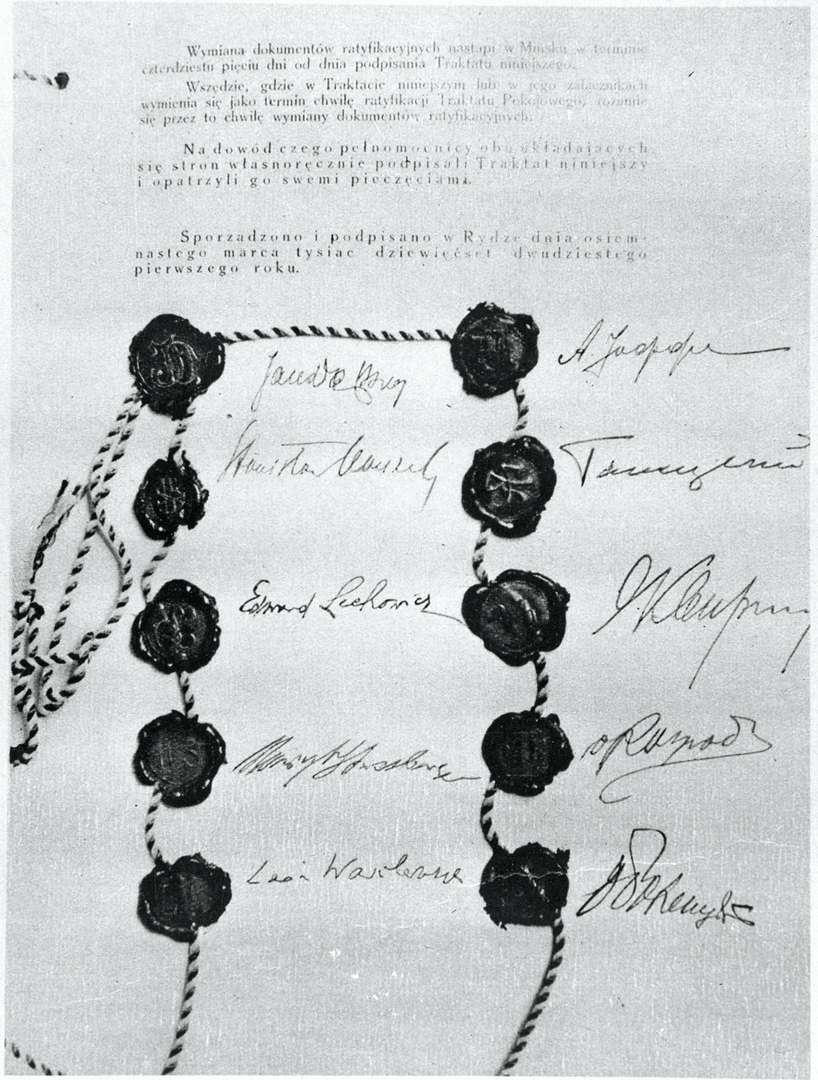 Wymiana dokumentów ratyfikacyjnych nastąpi w Mińsku w terminie
czterdziestu pięciu dni od dnia podpisania Traktatu niniejszego.
Wszędzie, gdzie w Traktacie niniejszym lub w jego załącznikach
wymienia się jako termin chwilę ratyfikacji Traktatu Pokojowego, rozumie
się przez to chwilę wymiany dokumentów ratyfikacyjnych.
Na dowód czego pełnomocnicy obu układających
się stron własnoręcznie podpisali Traktat niniejszy
i opatrzyli go swemi pieczęciami.
Sporządzono i podpisano w Rydze dnia osiem-
nastego marca tysiąc dziewięćset dwudziestego
pierwszego roku.
A
Edward Lechowicz
Leon